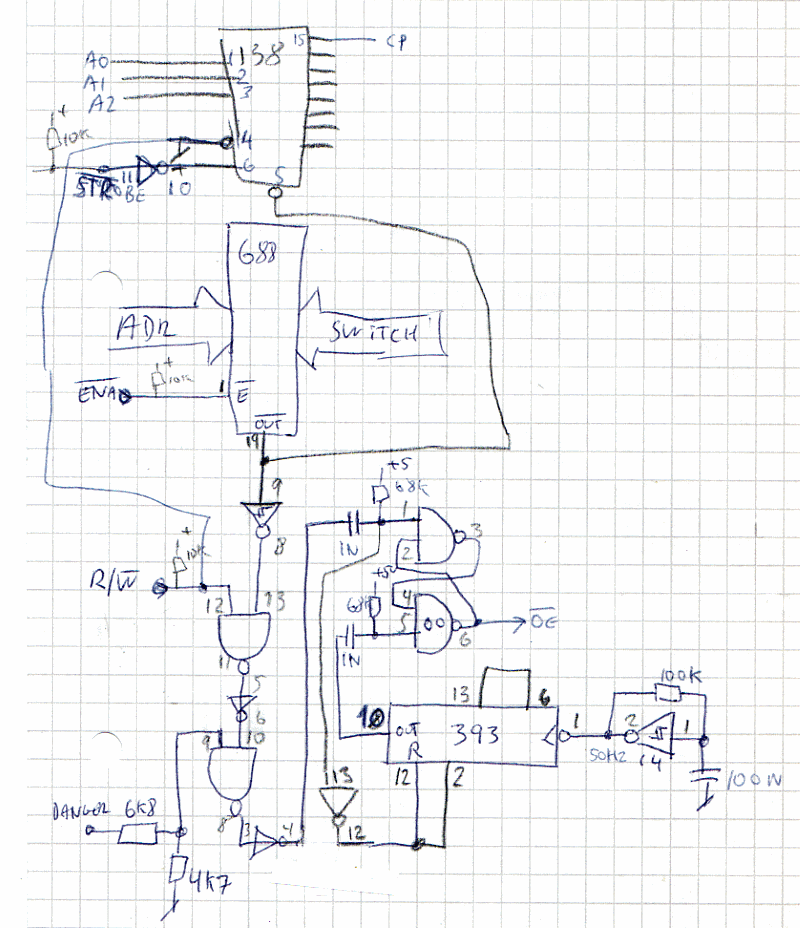 15 CP
138
A0 1
A1 2
A2 3
+
10K
14
6
STROBE 11 10
5
688
ADR
SWITCH
+
10K
ENA 1 E
OUT
19
9
8
+5
68K
1
1N
2
3
+
10K
R/W
12 13
+5
68K
4
5
00
6
OE
1N
11
5
6
9 10
13 6
100K
10 OUT 393 1 2 1
R
50HZ 14
12 2
100N
13
DANGER 6K8
8 3 4
12
4K7